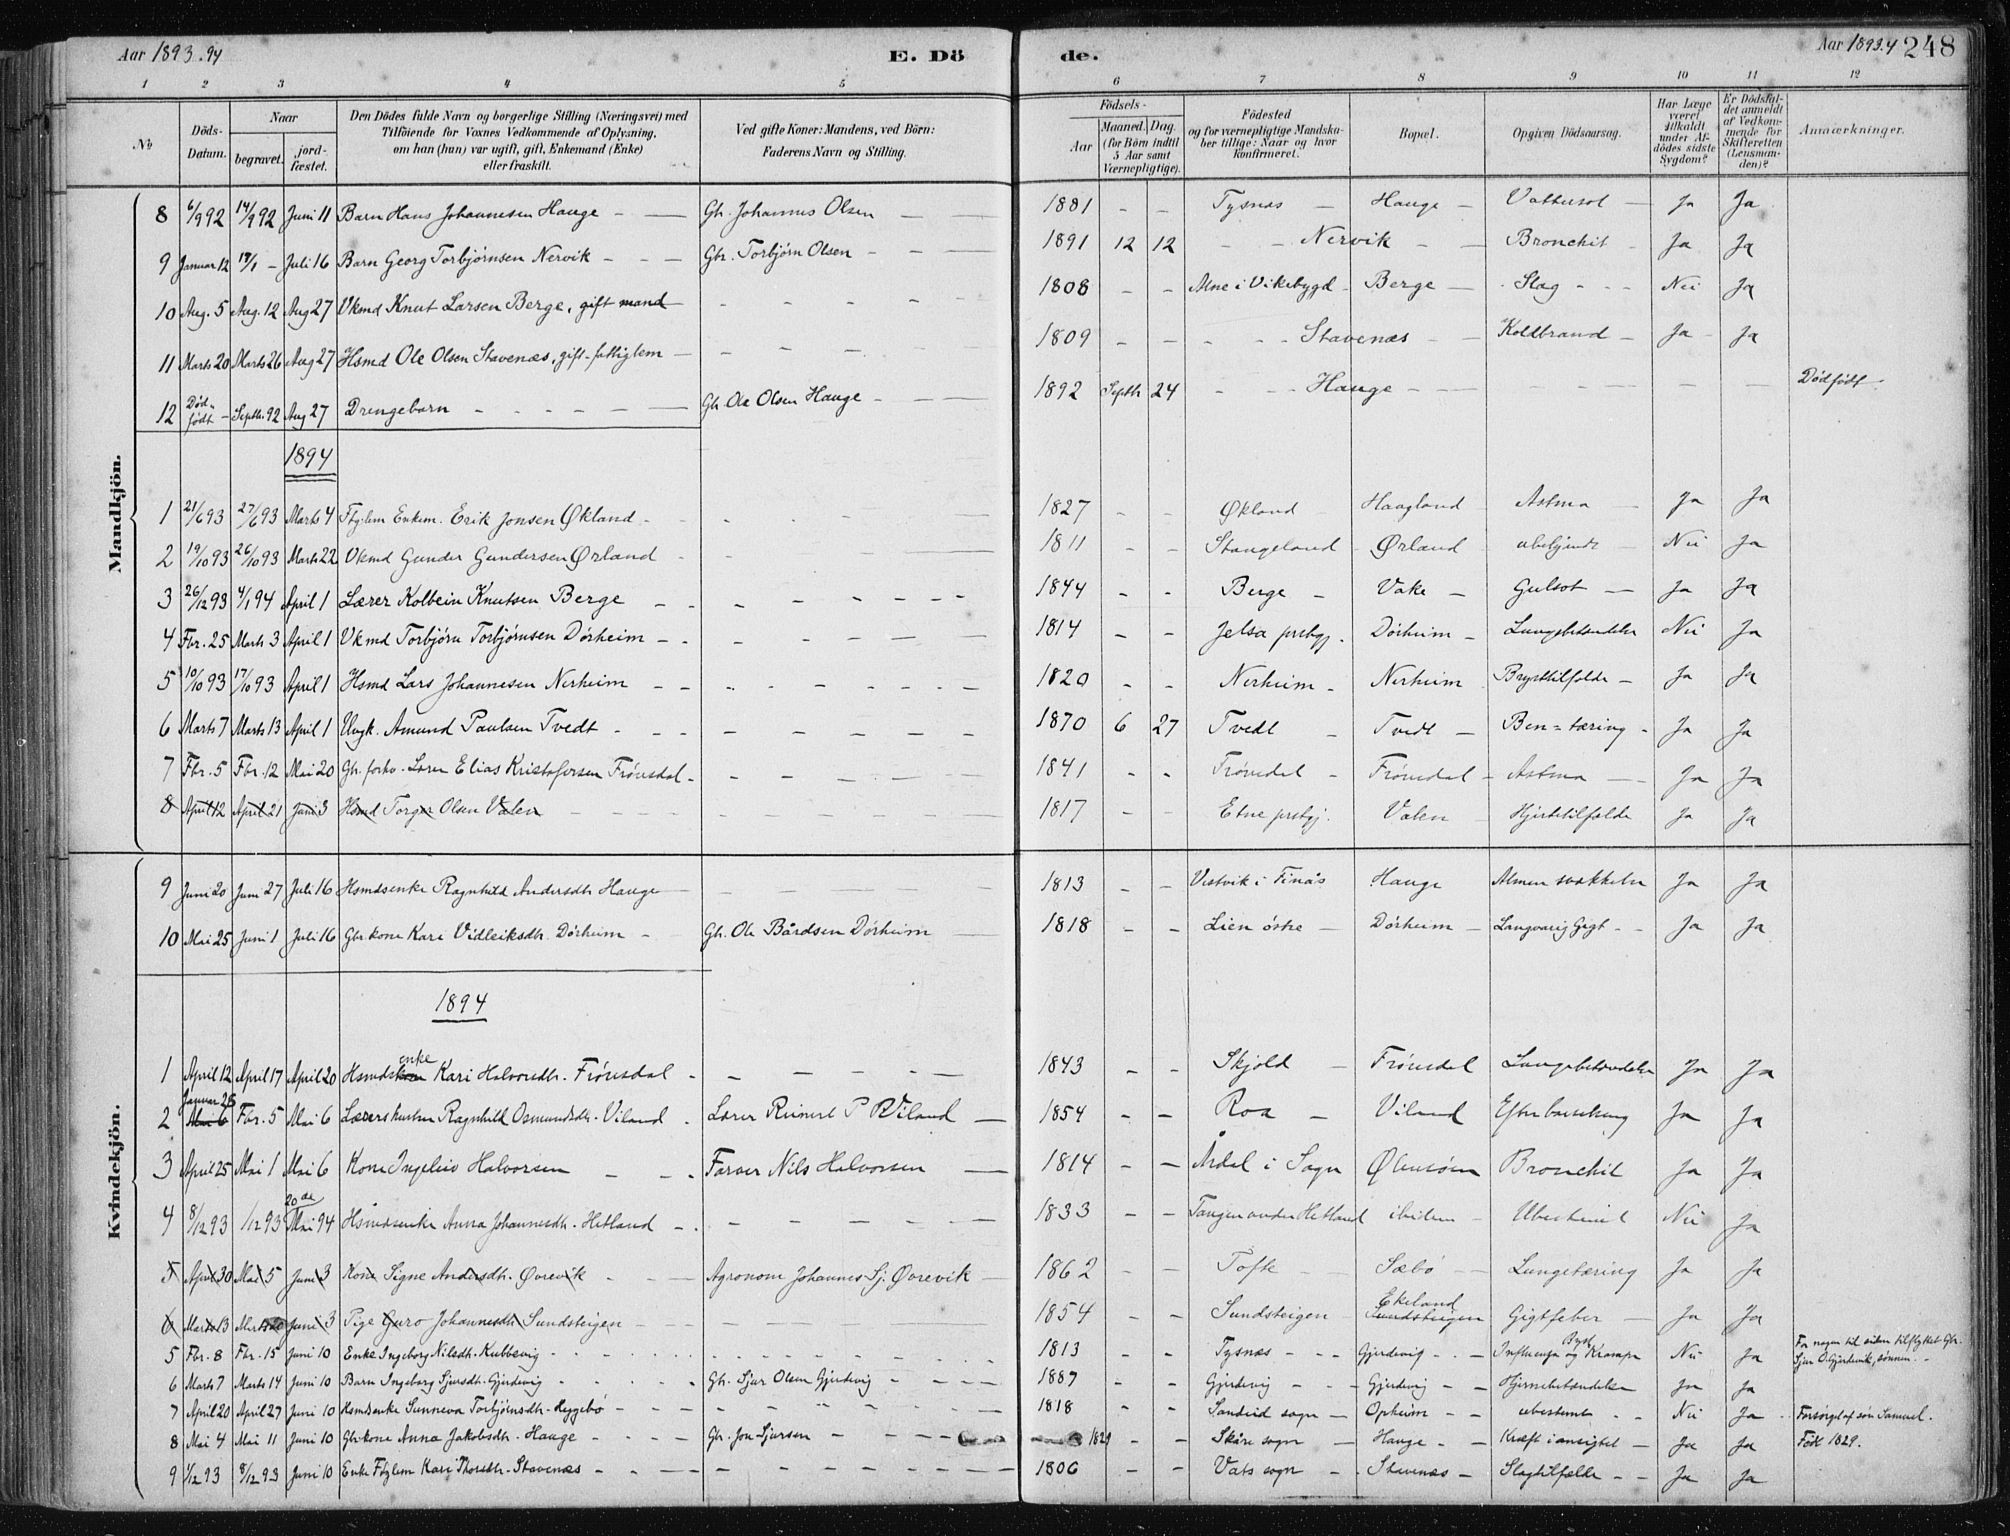 Aar 1893.94 E. Dö de. Aar 1893.4 248
1 2 3 4 5 6 7 8 9 10 11 12
№ Döds-Datum. Naar begravet. jordfæstet. Den Dödes fulde Navn og borgerlige Stilling (Næringsvei) med Tilföiende for Voxnes Vedkommende af Oplysning, om han (hun) var ugift, gift, Enkemand (Enke) eller fraskilt. Ved gifte Koner: Mandens, ved Börn: Faderens Navn og Stilling. Födsels- Aar Maaned. Dag. (for Börn indtil 5 Aar samt Værnepligtige). Födested og for værnepligtige Mandskaber tillige: Naar og hvor konfirmeret. Bopæl. Opgiven Dödsaarsag. Har Læge været tilkaldt under Afdödes sidste Sygdom? Er Dödsfaldet anmeldt af Vedkommende for Skifteretten (Lensmanden)? Anmærkninger.
Mandkjön.
8 6/9 92 14/9 92 Juni 11 Barn Hans Johannesen Hauge Gbr. Johannes Olsen 1881 - - Tysnæs Hauge Vattersot Ja Ja
9 Januar 12 18/1 Juli 16 Barn Georg Torbjørnsen Nervik Gbr. Torbjørn Olsen 1891 12 12 - Nervik - Bronchit Ja Ja
10 Aug. 5 Aug. 12 Aug 27 Vkmd Knut Larsen Berge, gift mand 1808 - - Alne i Vikebygd Berge Slag Nei Ja
11 Marts 20 Marts 26 Aug 27 Hsmd Ole Olsen Stavenæs, gift fattiglem 1809 - - Stavenæs Koldbrand Ja Ja
12 Dødfødt Septbr. 92 Aug 27 Drengebarn Gbr Ole Olsen Hauge 1892 Septbr 24 - Hauge Dødfødt
1894
1 21/6 93 27/6 93 Marts 4 Ftglem Enkem. Erik Jonsen Økland 1827 - - Økland Haagland Astma Ja Ja
2 19/10 93 26/10 93 Marts 22 Vkmd Gunder Gundersen Ørland 1811 - - Stangeland Ørland Nei Ja
3 26/12 93 4/1 94 April 1 Lærer Kolbein Knutsen Berge 1844 - - Berge Vake Gulsot Ja Ja
4 Fbr. 25 Marts 3 April 1 Vkmd Torbjörn Torbjørnsen Dörheim 1814 - - Jelsa prstgj. Dörheim Lungebetændelse Nei Ja
5 10/10 93 17/10 93 April 1 Hsmd Lars Johannesen Nerheim 1820 - - Nerheim Nerheim Brysttilfælde Ja Ja
6 Marts 7 Marts 13 April 1 Ungk. Amund Paulsen Tvedt 1870 6 27 Tvedt Tvedt Ben=tæring Ja Ja
7 Fbr. 5 Fbr. 12 Mai 20 Gbr. forhv. Lærer Elias Kristofersen Frönsdal 1841 - - Frönsdal Frönsdal Astma Ja Ja
8 April 12 April 21 Juni 3 Hsmd Torger Olsen Valen 1817 - - Etne prstgj. Valen Hjertetilfælde Ja Ja
Kvindekjön.
9 Juni 20 Juni 27 Juli 16 Hsmdsenke Ragnhild Andersdtr Hauge 1813 - - Vestvik i Finås Hauge Almen svækkelse Ja Ja
10 Mai 25 Juni 1 Juli 16 Gbrkone Kari Vidleiksdtr. Dörheim Gbr. Ole Bårdsen Dörheim 1818 - - Lien östre Dörheim Langvarig Gigt Ja Ja
1894
1 April 12 April 17 April 20 Hsmdskone enke Kari Halvorsdtr. Frönsdal 1843 - - Skjold Frönsdal Lungebetændelse Ja Ja
2 Januar 28 Mai 6 Fbr. 5 Mai 6 Lærershustru Ragnhild Osmundsdtr. Viland Lærer Reinert P Viland 1854 - - Roa Viland Ja Ja
3 April 25 Mai 1 Mai 6 Kone Ingeleiv Halvorsen Farver Nils Halvorsen 1814 - - Årdal i Sogn Ølensören Bronchit Ja Ja
4 8/12 93 /12 93 20de Mai 94 Hsmdsenke Anna Johannesdtr. Hetland 1833 - - Tangen under Hetland ibidem Ubestemt Nei Ja
5 April 30 Mai 5 Juni 3 Kone Signe Andersdtr. Øvrevik Agronom Johannes Sj. Øvrevik 1862 - - Tofte Sæbö Lungetæring Ja Ja
6 Marts 13 Marts 20 Juni 3 Pige Guro Johannesdtr Sundsteigen 1854 - Sundsteigen Ekeland Sundsteigen Gigtfeber Ja Ja
5 Fbr. 8 Fbr. 15 Juni 10 Enke Ingeborg Nilsdtr. Kubbevig 1813 - - Tysnæs Gjerdevig Influenza og Bryst Krampe Nei Ja For nogen tid siden tilflyttet Gbr. Sjur O. Gjerdevik, sønnen.
6 Marts 7 Marts 14 Juni 10 Barn Ingeborg Sjursdtr. Gjerdevig Gbr. Sjur Olsen Gjerdevig 1887 - - Gjerdevig Gjerdevig Hjernebetændelse Ja Ja
7 April 20 April 27 Juni 10 Hsmdsenke Sunneva Torbjörnsdtr. Heggebö 1818 - - Sandeid sogn Opheim ubestemt Nei Ja Forsörget af søn Samuel.
8 Mai 4 Mai 11 Juni 10 Gbrkone Anna Jakobsdtr. Hauge Gbr. Jon Sjursen 1829 - - Skåre sogn Hauge Kræft i ansigtet Ja Ja Født 1829.
9 1/12 93 8/12 93 Juni 10 Enke Ftglem Kari Thorsdtr. Stavenæs 1806 - - Vats sogn Stavenæs Slagtilfælde Ja Ja